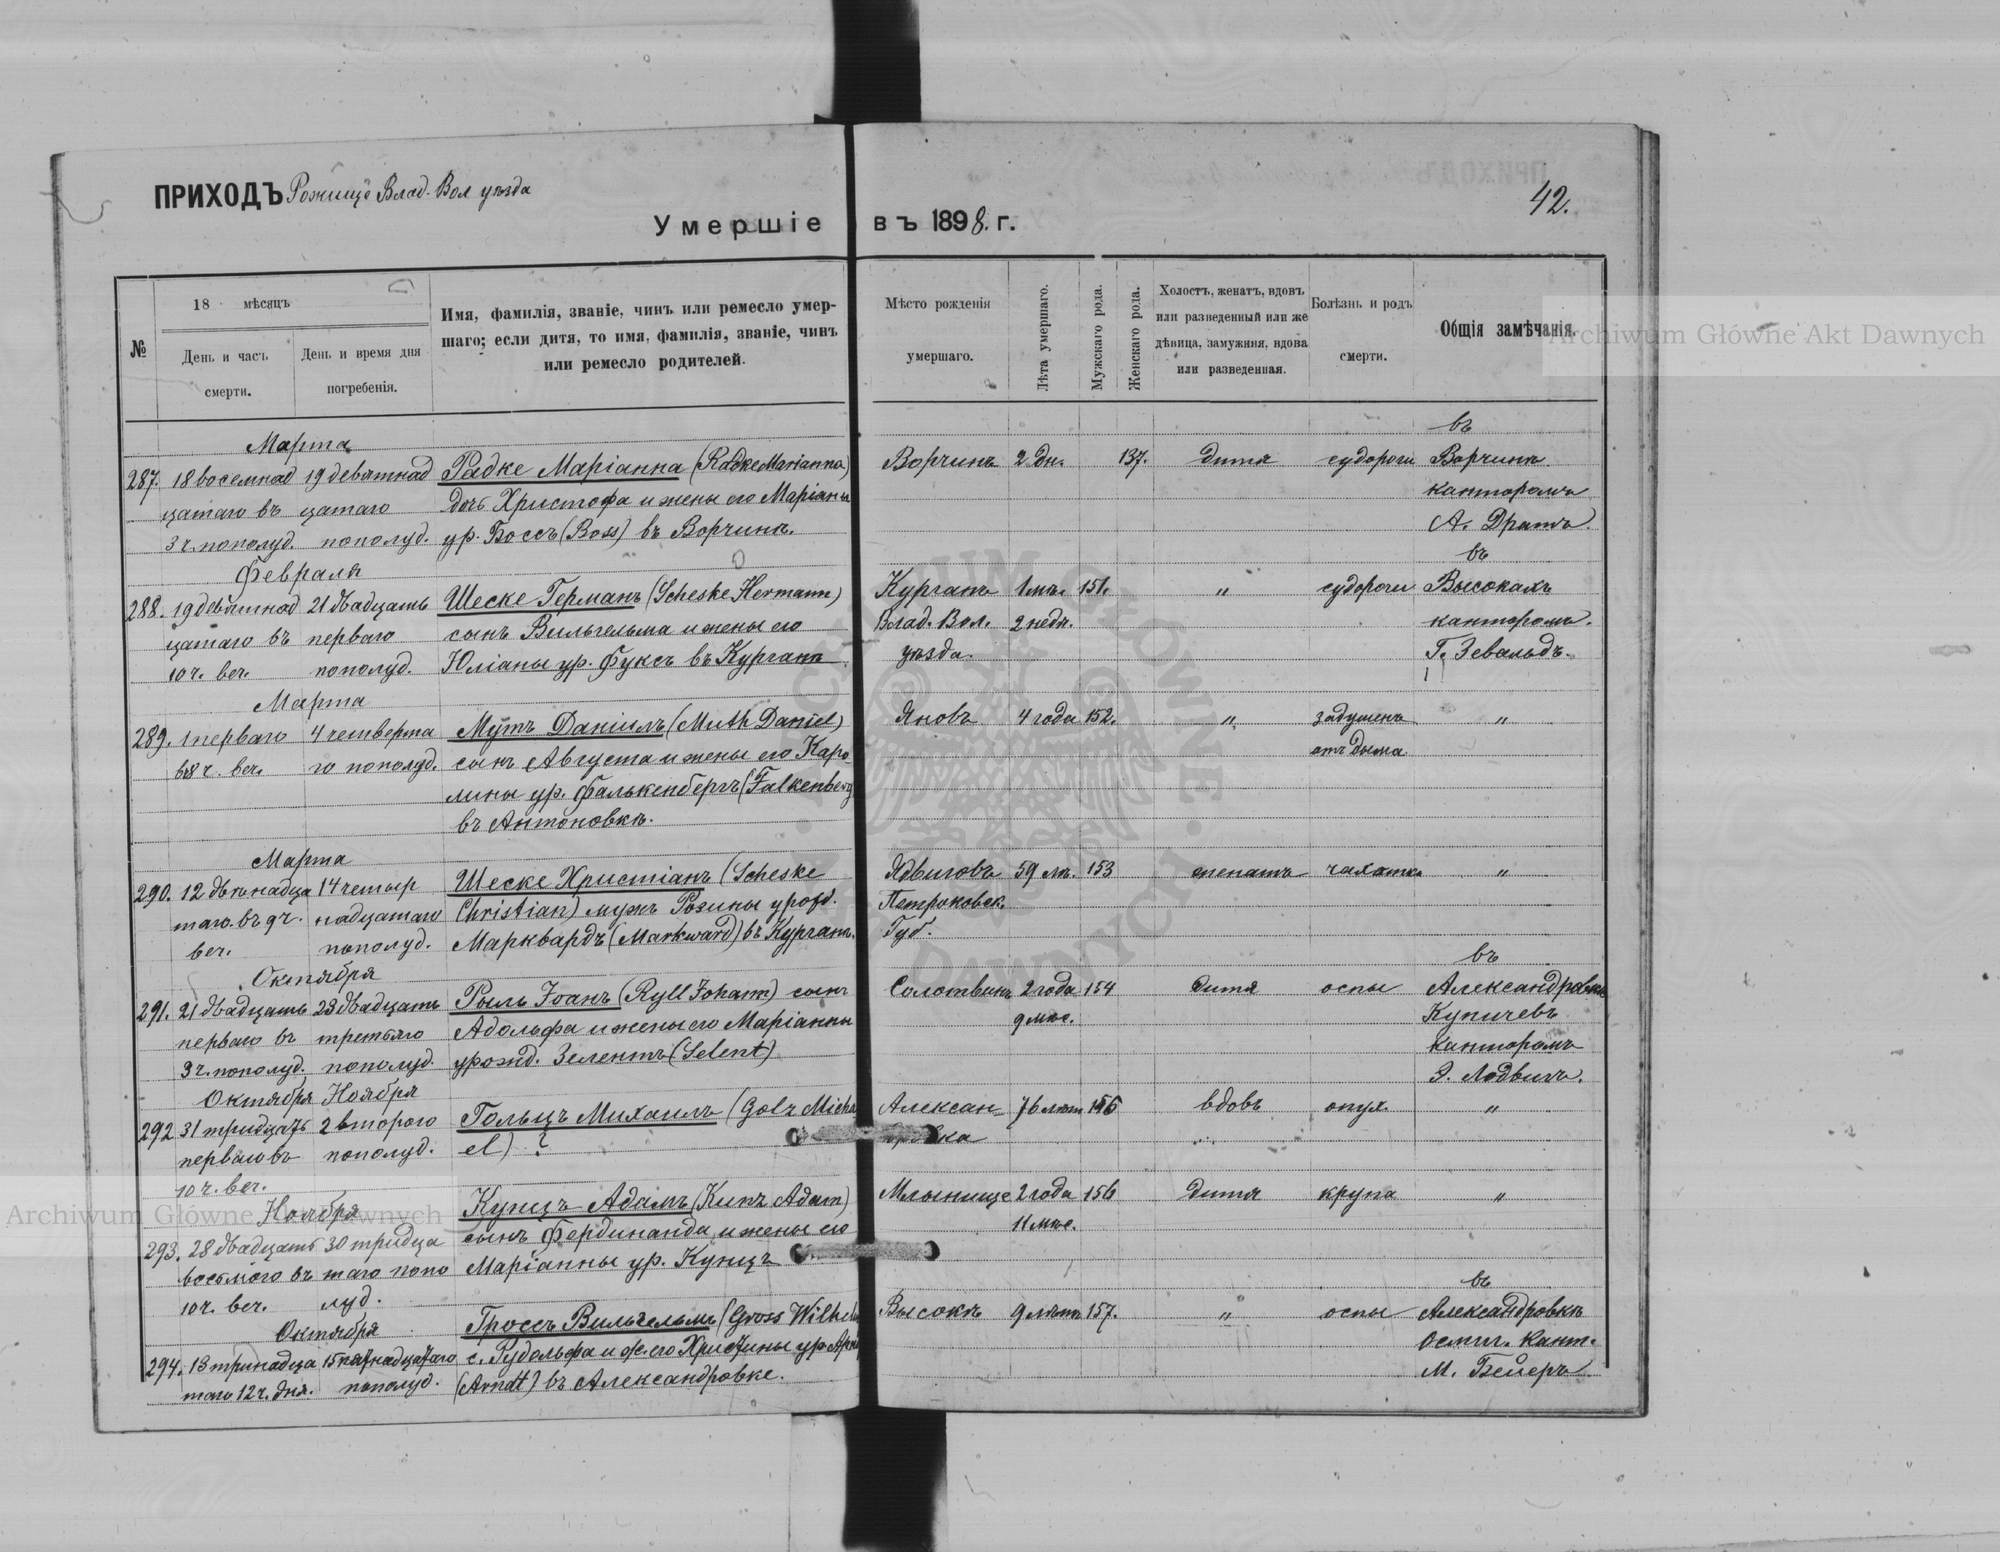 ПРИХОДЪ Рожище Влад. Вол уѣзда
42.
Умершіе въ 1898. г.
№
18 мѣсяцъ
День и часъ смерти.
День и время дня погребенія.
Имя, фамилія, званіе, чинъ или ремесло умер-
шаго; если дитя, то имя, фамилія, званіе, чинъ
или ремесло родителей.
Мѣсто рожденія
умершаго.
Лѣта умершаго.
Мужскаго рода.
Женскаго рода.
Холостъ, женатъ, вдовъ
или разведенный или же
дѣвица, замужняя, вдова
или разведенная.
Болѣзнь и родъ
смерти.
Общія замѣчанія.
Archiwum Główne Akt Dawnych
Марта въ
287. 18 восемнад 19 девятнад Радке Маріанна (Radke Marianna) Ворчинъ 2 дн. 137. дитя судороги Ворчинѣ
цатаго въ цатаго дочь Христофа и жены его Маріаны канторомъ
3 ч. пополуд. пополуд. ур. Боссъ (Boss) въ Ворчинѣ. А. Дратъ.
Февраля въ
288. 19 девятнад 21 двадцать Шеске Германъ (Scheske Hermann) Курганъ 1 мѣс. 151. " судороги Высокахъ
цатаго въ перваго сынъ Вильгельма и жены его Влад. Вол. 2 недѣ. канторомъ.
10 ч. веч. пополуд. Юліаны ур. Фуксъ въ Курганѣ уѣзда. Г. Зевальдъ.
Марта
289. 1 перваго 4 четверта Мутъ Даніилъ (Muth Daniel) Яновъ 4 года 152. " задушенъ "
въ 8 ч. веч. го пополуд. сынъ Августа и жены его Каро отъ дыма.
лины ур. Фалькенбергъ (Falkenberg
въ Антоновкѣ.
Марта
290. 12 двѣнадца 14 четыр Шеске Христіанъ (Scheske Ядвиговъ 59 лѣ. 153 женатъ чахотка "
таго въ 9 ч. надцатаго Christian) мужъ Розины урожд. Петроковск.
веч. пополуд. Марквардъ (Markward) въ Курганѣ. Губ.
Октября въ
291. 21 двадцать 23 двадцать Рыль Іоанъ (Ryll Johann) сынъ Солотвинъ 2 года 154 дитя оспы Александровкѣ
перваго въ третьяго Адольфа и жены его Маріанны 9 мѣс. Купичевъ
3 ч. пополуд. пополуд. урожд. Зелентъ (Selent) канторомъ
Октября Ноября Э. Лодвигъ.
292 31 тридцать 2 второго Гольцъ Михаилъ (Golz Micha Алексан- 76 лѣтъ 155 вдовъ опух. "
перваго въ пополуд. el) ? дровка
10 ч. веч.
Ноября Кунцъ Адамъ (Kunz Adam) Млынище 2 года 156 дитя крупа "
293. 28 двадцать 30 тридца сынъ Фердинанда и жены его 11 мѣс.
восьмого въ таго попо Маріанны ур. Кунцъ
10 ч. веч. луд. въ
Октября Гроссъ Вильгельмъ (Gross Wilhelm Высокѣ 9 лѣтъ 157. " оспы Александровкѣ
294. 13 тринадца 15 пятнадцатаго с. Рудольфа и ж. его Христины ур. Арндтъ Осниг. кант.
таго 12 ч. дня. пополуд. (Arndt) въ Александровке. М. Бейеръ
Archiwum Główne Akt Dawnych